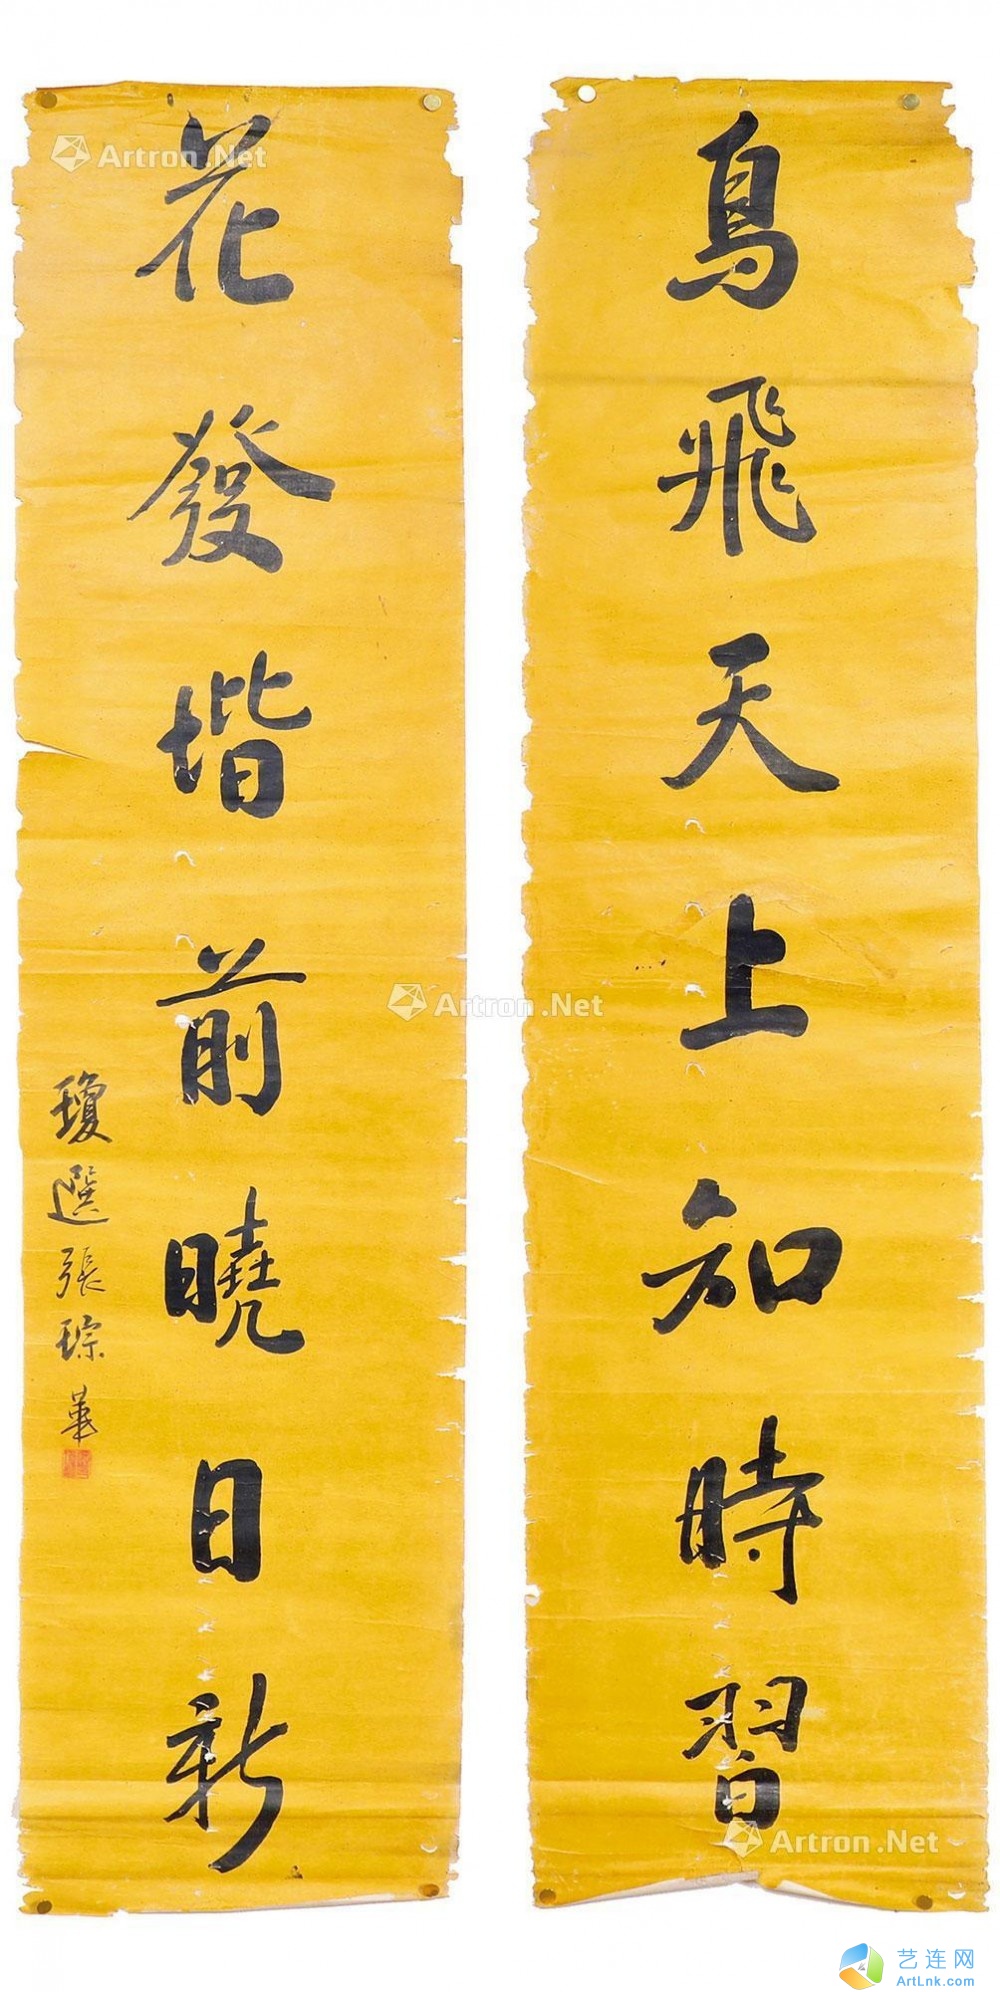 鳥飛天上知時習
花發堦前曉日新
瓊選張琮華
Artron.Net
Artron.Net
Artron.Net
艺连网
ArtLnk.com